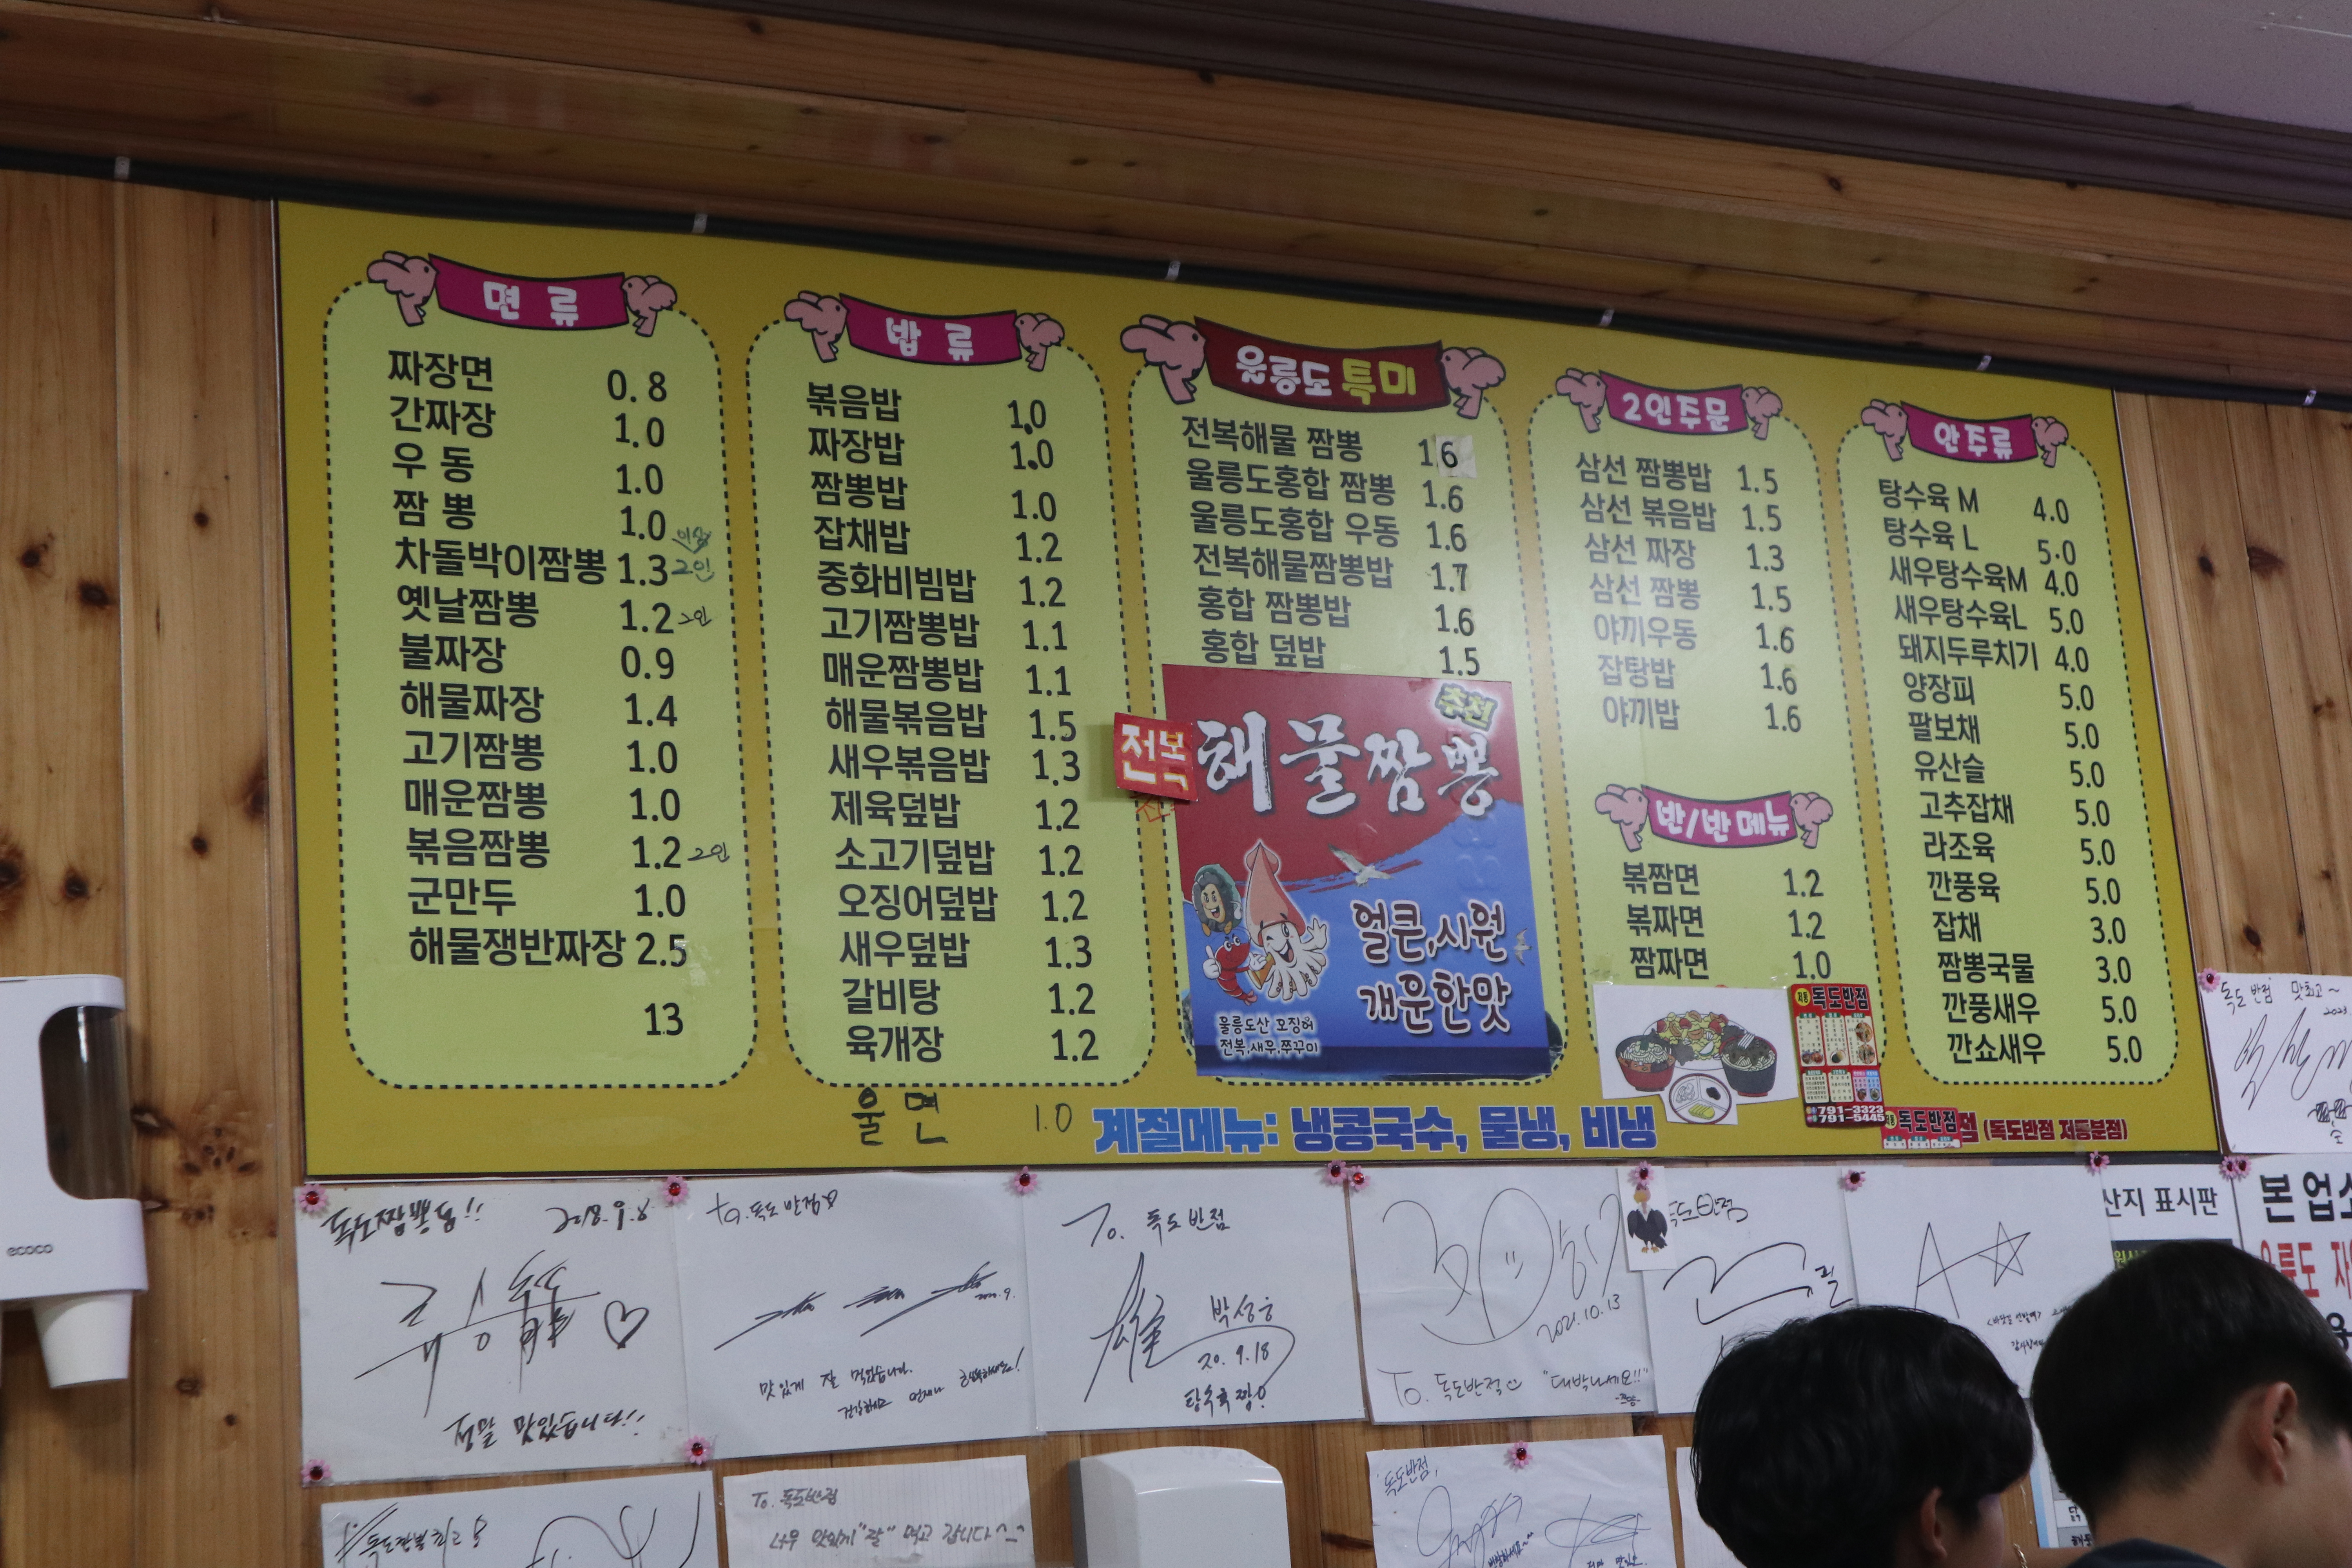 면 류
짜장면 0.8
간짜장 1.0
우 동 1.0
짬 뽕 1.0
차돌박이짬뽕 1.3 2인
옛날짬뽕 1.2 2인
불짜장 0.9
해물짜장 1.4
고기짬뽕 1.0
매운짬뽕 1.0
볶음짬뽕 1.2 2인
군만두 1.0
해물쟁반짜장 2.5
13
밥 류
볶음밥 1.0
짜장밥 1.0
짬뽕밥 1.0
잡채밥 1.2
중화비빔밥 1.2
고기짬뽕밥 1.1
매운짬뽕밥 1.1
해물볶음밥 1.5
새우볶음밥 1.3
제육덮밥 1.2
소고기덮밥 1.2
오징어덮밥 1.2
새우덮밥 1.3
갈비탕 1.2
육개장 1.2
울면 1.0
울릉도 특미
전복해물 짬뽕 1.6
울릉도홍합 짬뽕 1.6
울릉도홍합 우동 1.6
전복해물짬뽕밥 1.7
홍합 짬뽕밥 1.6
홍합 덮밥 1.5
추천
전복
해물짬뽕
얼큰,시원
개운한맛
울릉도산 오징어
전복,새우,쭈꾸미
2인주문
삼선 짬뽕밥 1.5
삼선 볶음밥 1.5
삼선 짜장 1.3
삼선 짬뽕 1.5
야끼우동 1.6
잡탕밥 1.6
야끼밥 1.6
반/반 메뉴
볶짬면 1.2
볶짜면 1.2
짬짜면 1.0
독도반점
791-3323
791-5445
안주류
탕수육 M 4.0
탕수육 L 5.0
새우탕수육M 4.0
새우탕수육L 5.0
돼지두루치기 4.0
양장피 5.0
팔보채 5.0
유산슬 5.0
고추잡채 5.0
라조육 5.0
깐풍육 5.0
잡채 3.0
짬뽕국물 3.0
깐풍새우 5.0
깐쇼새우 5.0
계절메뉴: 냉콩국수, 물냉, 비냉
독도반점
점 (독도반점 저동분점)
독도반점 맛최고~
2023
ecoco
독도짬뽕용!!
정말 맛있습니다!!
to.독도반점
맛있게 잘 먹었습니다.
To. 독도반점
박성웅
20.9.18
탕수육 짱!
2021.10.13
To. 독도반점 "대박나세요!!"
독도반점
산지 표시판
본 업소
울릉도
To. 독도반점
너무 맛있게 "잘" 먹고 갑니다^-^
독도반점,